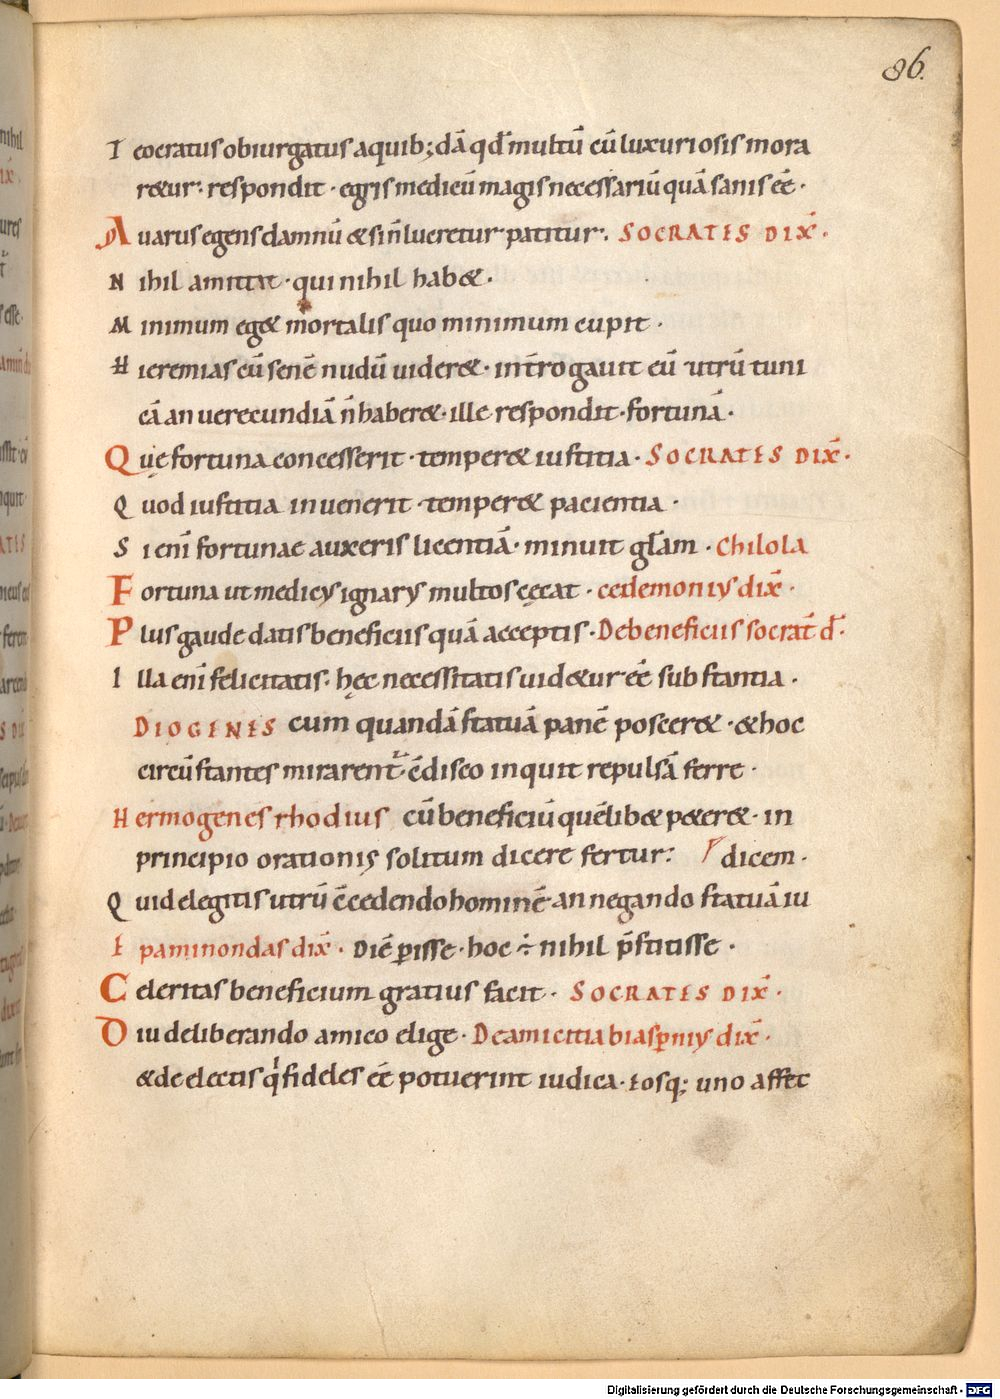 86.
I cocratus obiurgatus a quib; dā qđ multū cū luxuriosis mora
retur· respondit · egris medicū magis necessariū quā sanis eē ·
Avarus egens damnū & si n̄ lueretur patitur · SOCRATIS DIX̄ ·
Nihil amittat · qui nihil habet ·
Minimum eget mortalis quo minimum cupit ·
Hieremias cū senē nudū videret · int̄rogavit eū utrū tuni
cā an verecundiā n̄ haberet · ille respondit · fortunā ·
Quę fortuna concesserit · temperet iustitia · SOCRATIS DIX̄ ·
Quod iustitia invenerit · temperet pacientia ·
Si enī fortunae auxeris licentiā · minuit gl̄am · Chilo la
Fortuna ut medicus ignarus multos cęcat · cedemonius dix̄ ·
Plus gaude datis beneficiis quā acceptis · De beneficiis socrat̄ đ ·
Illa enī felicitatis · hęc necessitatis videtur eē substantia ·
DIOGINIS cum quandā statuā panē posceret · & hoc
circūstantes mirarent᷑ · ēdisco inquit repulsā ferre ·
Hermogenes rhodius cū beneficiū quēlibet peteret · in
principio orationis solitum dicere fertur: dicem ·
Quid elegitis utrū c̄cedendo hominē an negando statuā iu
Epaminondas dix̄ · Diē ꝑisse · hoc ÷ nihil p̄stitisse ·
Celeritas beneficium gratius facit · SOCRATIS DIX̄ ·
Diu deliberando amico elige · De amicitia bias ꝑnius dix̄ ·
& de electis q̇ fideles eē potuerint iudica · eosq; uno affec
Digitalisierung gefördert durch die Deutsche Forschungsgemeinschaft - DFG